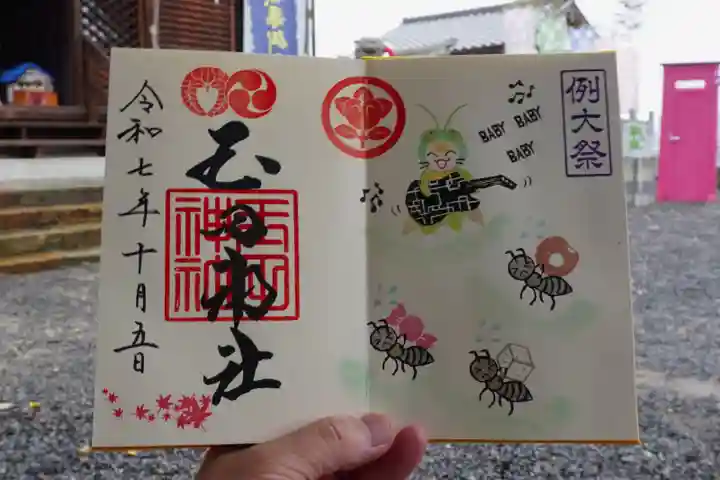 例大祭
BABY BABY
BABY
玉田神社
玉田
神社
令和七年十月五日